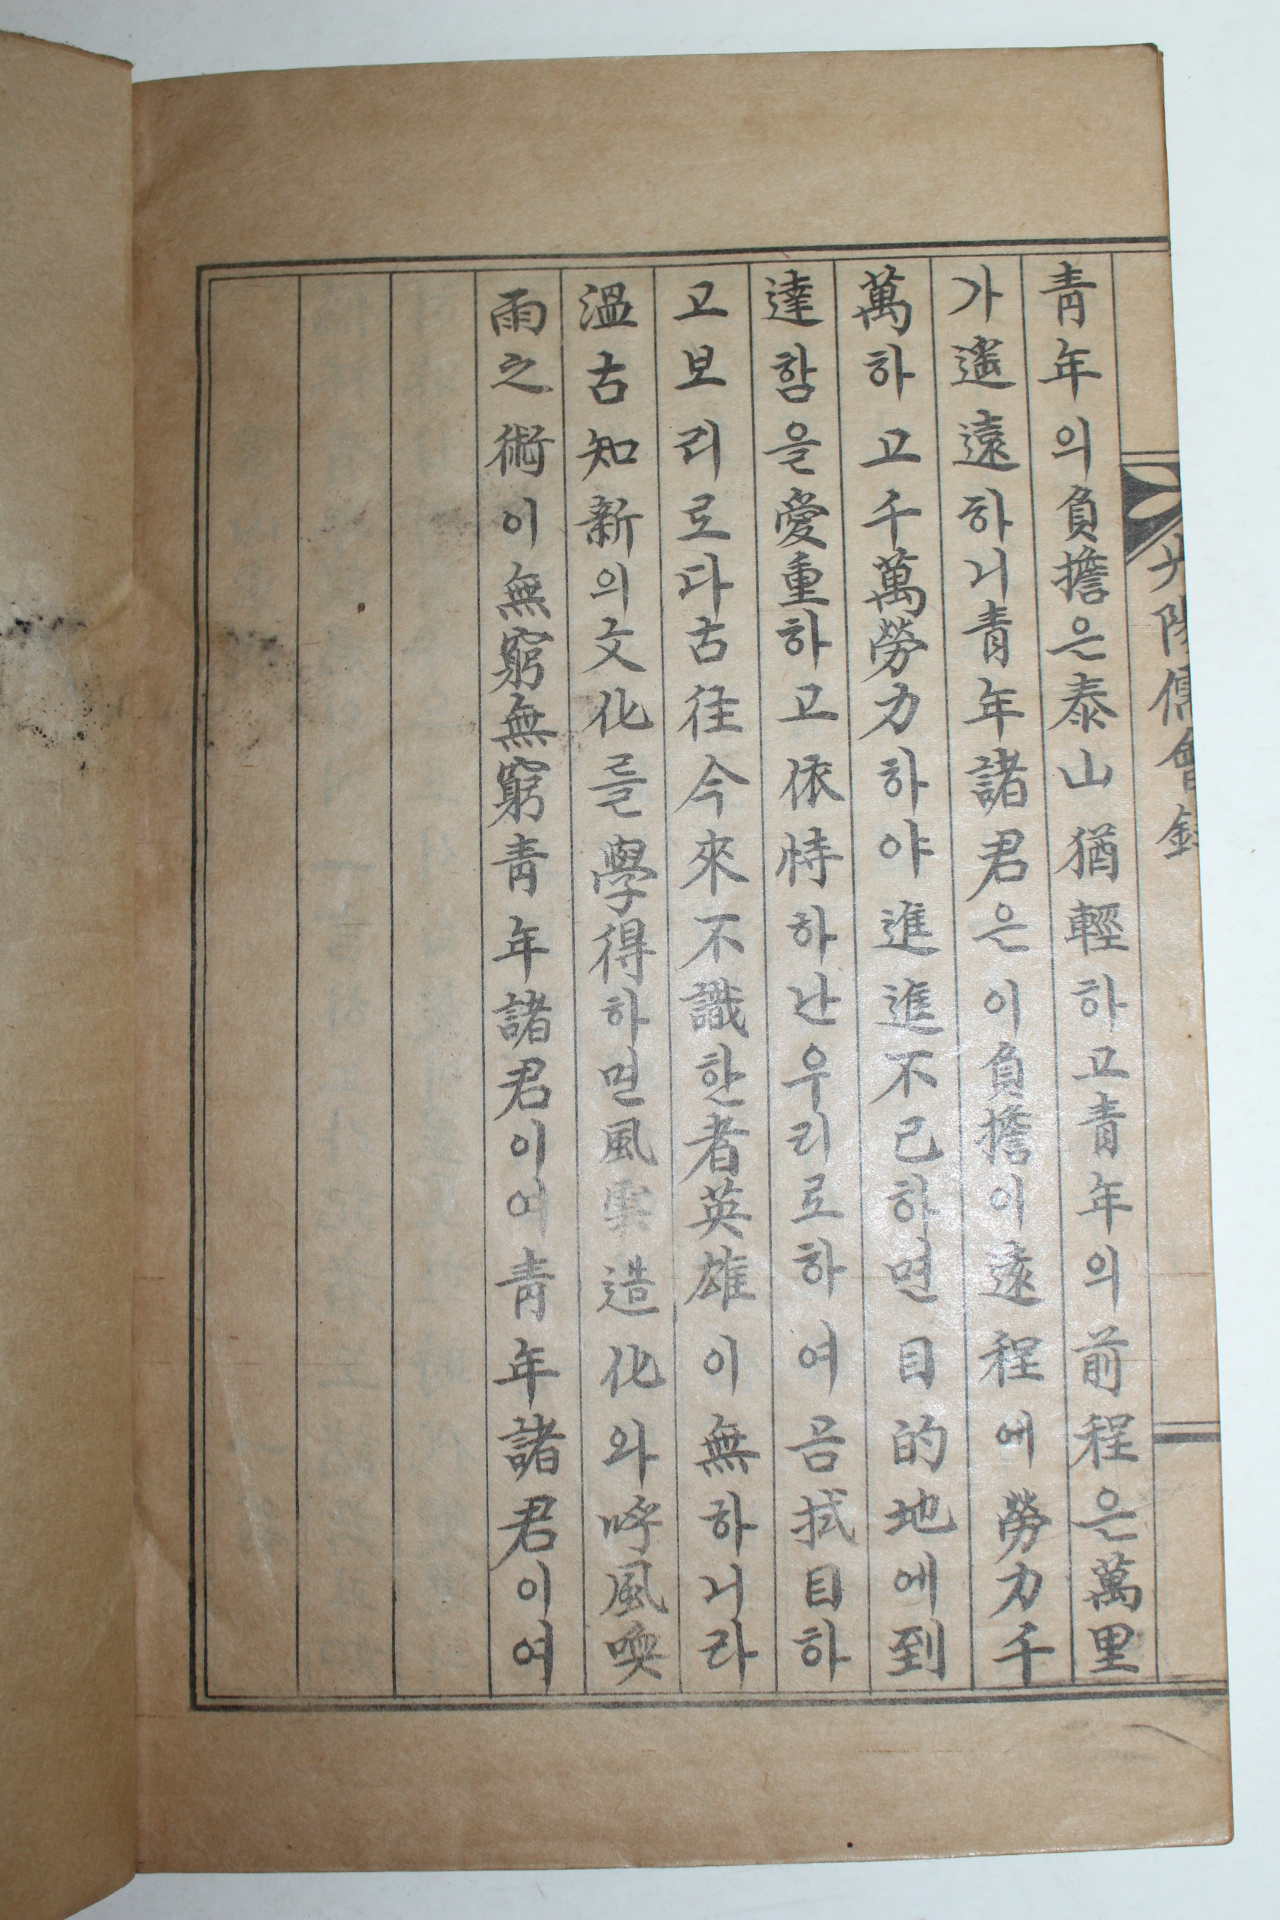 靑年의負擔은泰山猶輕하고靑年의前程은萬里
가遙遠하니靑年諸君은이負擔이遠程에勞力千
萬하고千萬勞力하야進進不已하면目的地에到
達함을愛重하고依恃하난우리로하여곰拭目하
고보리로다古往今來不識한者英雄이無하니라
溫古知新의文化를學得하면風雲造化와呼風喚
雨之術이無窮無窮靑年諸君이여靑年諸君이여
陽儒會錄